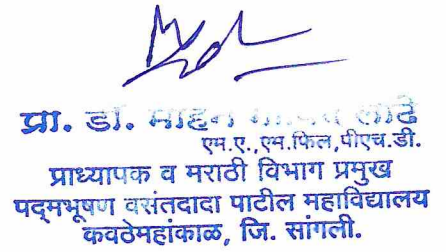 प्रा. डॉ. मोहन लोंढे
एम.ए.,एम.फिल,पीएच.डी.
प्राध्यापक व मराठी विभाग प्रमुख
पद्‌मभूषण वसंतदादा पाटील महाविद्यालय
कवठेमहांकाळ, जि. सांगली.